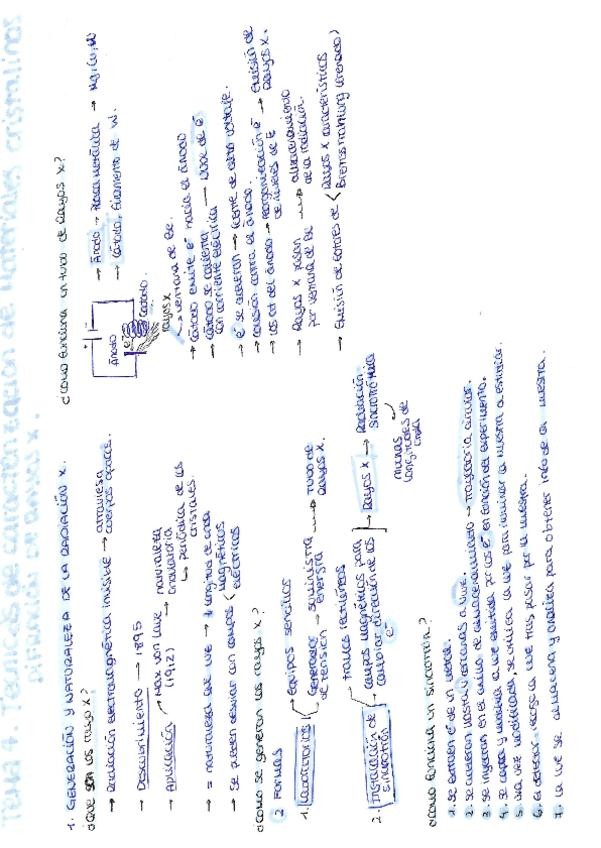 TEMA 7. Técnicas de caracterización de Materiales cristalinos
difracción de Rayos X.
1. GENERACIÓN Y NATURALEZA DE LA RADIACIÓN X.
¿Qué son los rayos X?
→ Radiación electromagnética invisible → atraviesa
cuerpos opacos.
→ Descubrimiento → 1895
→ Aplicación → Max von Laue → naturaleza
(1912) ondulatoria
↳ Periódica de los
cristales.
→ = naturaleza que luz → ≠ longitud de onda
→ Se pueden desviar con campos < Magnéticos
eléctricos
¿Cómo se generan los rayos X?
2 Formas
1. Laboratorios → Equipos sencillos
Generador → suministra → TUBO DE
de tensión energía RAYOS X.
2. Instalación de → tramos rectilíneos
sincrotrón → campos magnéticos para
cambiar dirección de los
e-
→ Rayos X → Radiación
sincrotrónica
muchas
longitudes de
onda
¿Cómo funciona un sincrotrón?
1. Se extraen e- de un metal.
2. Se aceleran hasta cercanas a luz. → trayectoria circular.
3. Se inyectan en el anillo de almacenamiento
4. Se capta y modifica la luz emitida por los e- en función del experimento.
5. Una vez modificada, se utiliza la luz para iluminar la muestra a estudiar.
6. El detector recoge la luz tras pasar por la muestra.
7. La luz se almacena y analiza para obtener info de la muestra.
¿Cómo funciona un tubo de Rayos X?
+ -
Ánodo
e-
Cátodo
rayos X
→ Ánodo → Placa metálica → Mg, Cu, W
→ Cátodo, filamento de W.
→ ventana de Be.
→ Cátodo emite e- hacia el ánodo
→ Cátodo se calienta → nube de e-
con corriente eléctrica
→ e- se aceleran → fuente de alto voltaje.
→ colisión contra el ánodo.
→ los at del ánodo → reorganización e- → Emisión de
de niveles de E Rayos X.
→ Rayos X pasan → aprovechamiento
por ventana de Be de la radiación.
→ Emisión de fotones de < Rayos X característicos
Bremsstrahlung (frenado)